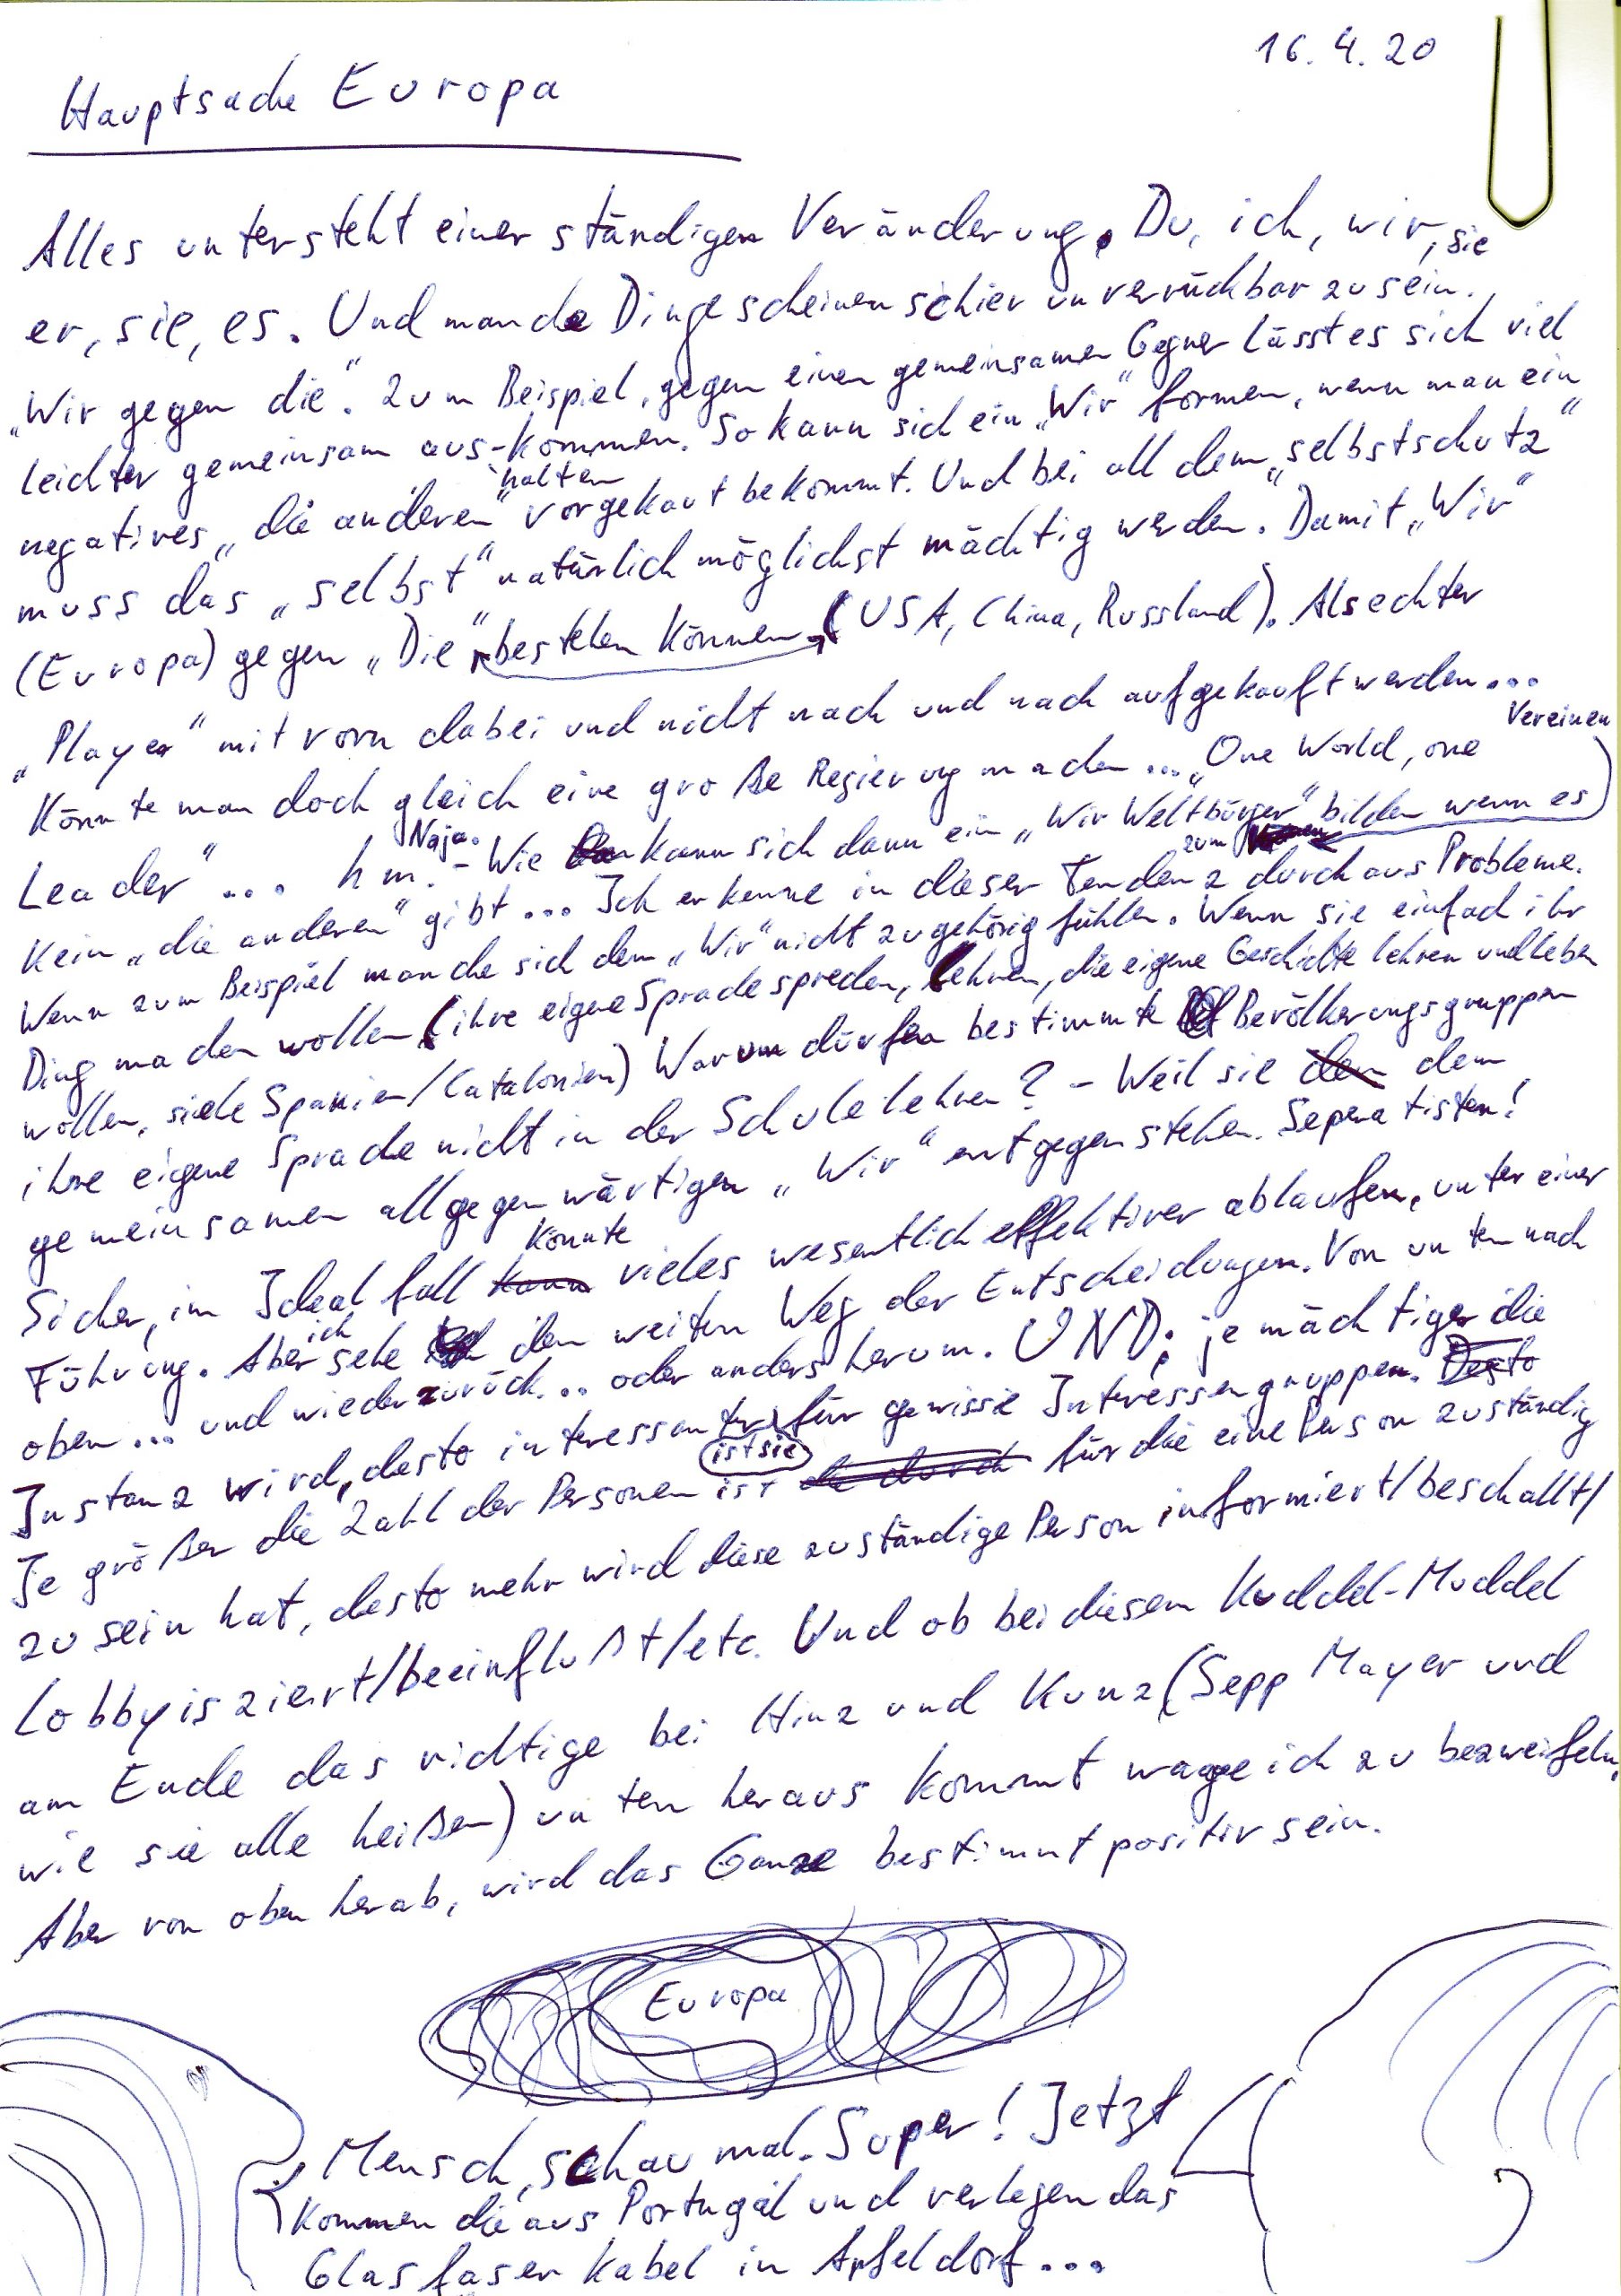 16.4.20
Hauptsache Europa
Alles untersteht einer ständigen Veränderung. Du, ich, wir, sie
er, sie, es. Und manche Dinge scheinen schier unverrückbar zu sein.
„Wir gegen die“. Zum Beispiel, gegen einen gemeinsamen Gegner lässt es sich viel
leichter gemeinsam aus-kommen. So kann sich ein „Wir“ formen, wenn man ein
halten
negatives „die anderen“ vorgekaut bekommt. Und bei all dem „selbstschutz“
muss das „selbst“ natürlich möglichst mächtig werden. Damit „Wir“
(Europa) gegen „Die“ bestehen können (USA, China, Russland). Als echter
„Player“ mit vorn dabei und nicht nach und nach aufgekauft werden...
Vereinen
Könnte man doch gleich eine große Regierung machen... „One World, one
Leader“... hm. Naja. - Wie kann sich dann ein „Wir Weltbürger“ bilden wenn es
zum
kein „die anderen“ gibt... Ich erkenne in dieser Tendenz durchaus Probleme.
Wenn zum Beispiel manche sich dem „Wir“ nicht zugehörig fühlen. Wenn sie einfach ihr
Ding machen wollen (ihre eigene Sprache sprechen, lehren, die eigene Geschichte lehren und leben
wollen, siehe Spanien/Catalonien) Warum dürfen bestimmte Bevölkerungsgruppen
ihre eigene Sprache nicht in der Schule lehren? - Weil sie den dem
gemeinsamen allgegenwärtigen „Wir“ entgegen stehen. Seperatisten!
Sicher, im Idealfall kann könnte vieles wesentlich effektiver ablaufen, unter einer
Führung. Aber ich sehe den weiten Weg der Entscheidungen. Von unten nach
oben... und wieder zurück... oder anders herum. UND: je mächtiger die
Instanz wird, desto interessanter ist sie für gewisse Interessengruppen. Desto
Je größer die Zahl der Personen ist die durch für die eine Person zuständig
zu sein hat, desto mehr wird diese zuständige Person informiert/beschallt/
Lobbyisziert/beeinflußt/etc. Und ob bei diesem Kuddel-Muddel
am Ende das richtige bei Hinz und Kunz (Sepp Mayer und
wie sie alle heißen) unten heraus kommt wage ich zu bezweifeln.
Aber von oben herab, wird das Ganze bestimmt positiv sein.
Europa
Mensch, schau mal. Super! Jetzt
kommen die aus Portugal und verlegen das
Glasfaserkabel in Apfeldorf...